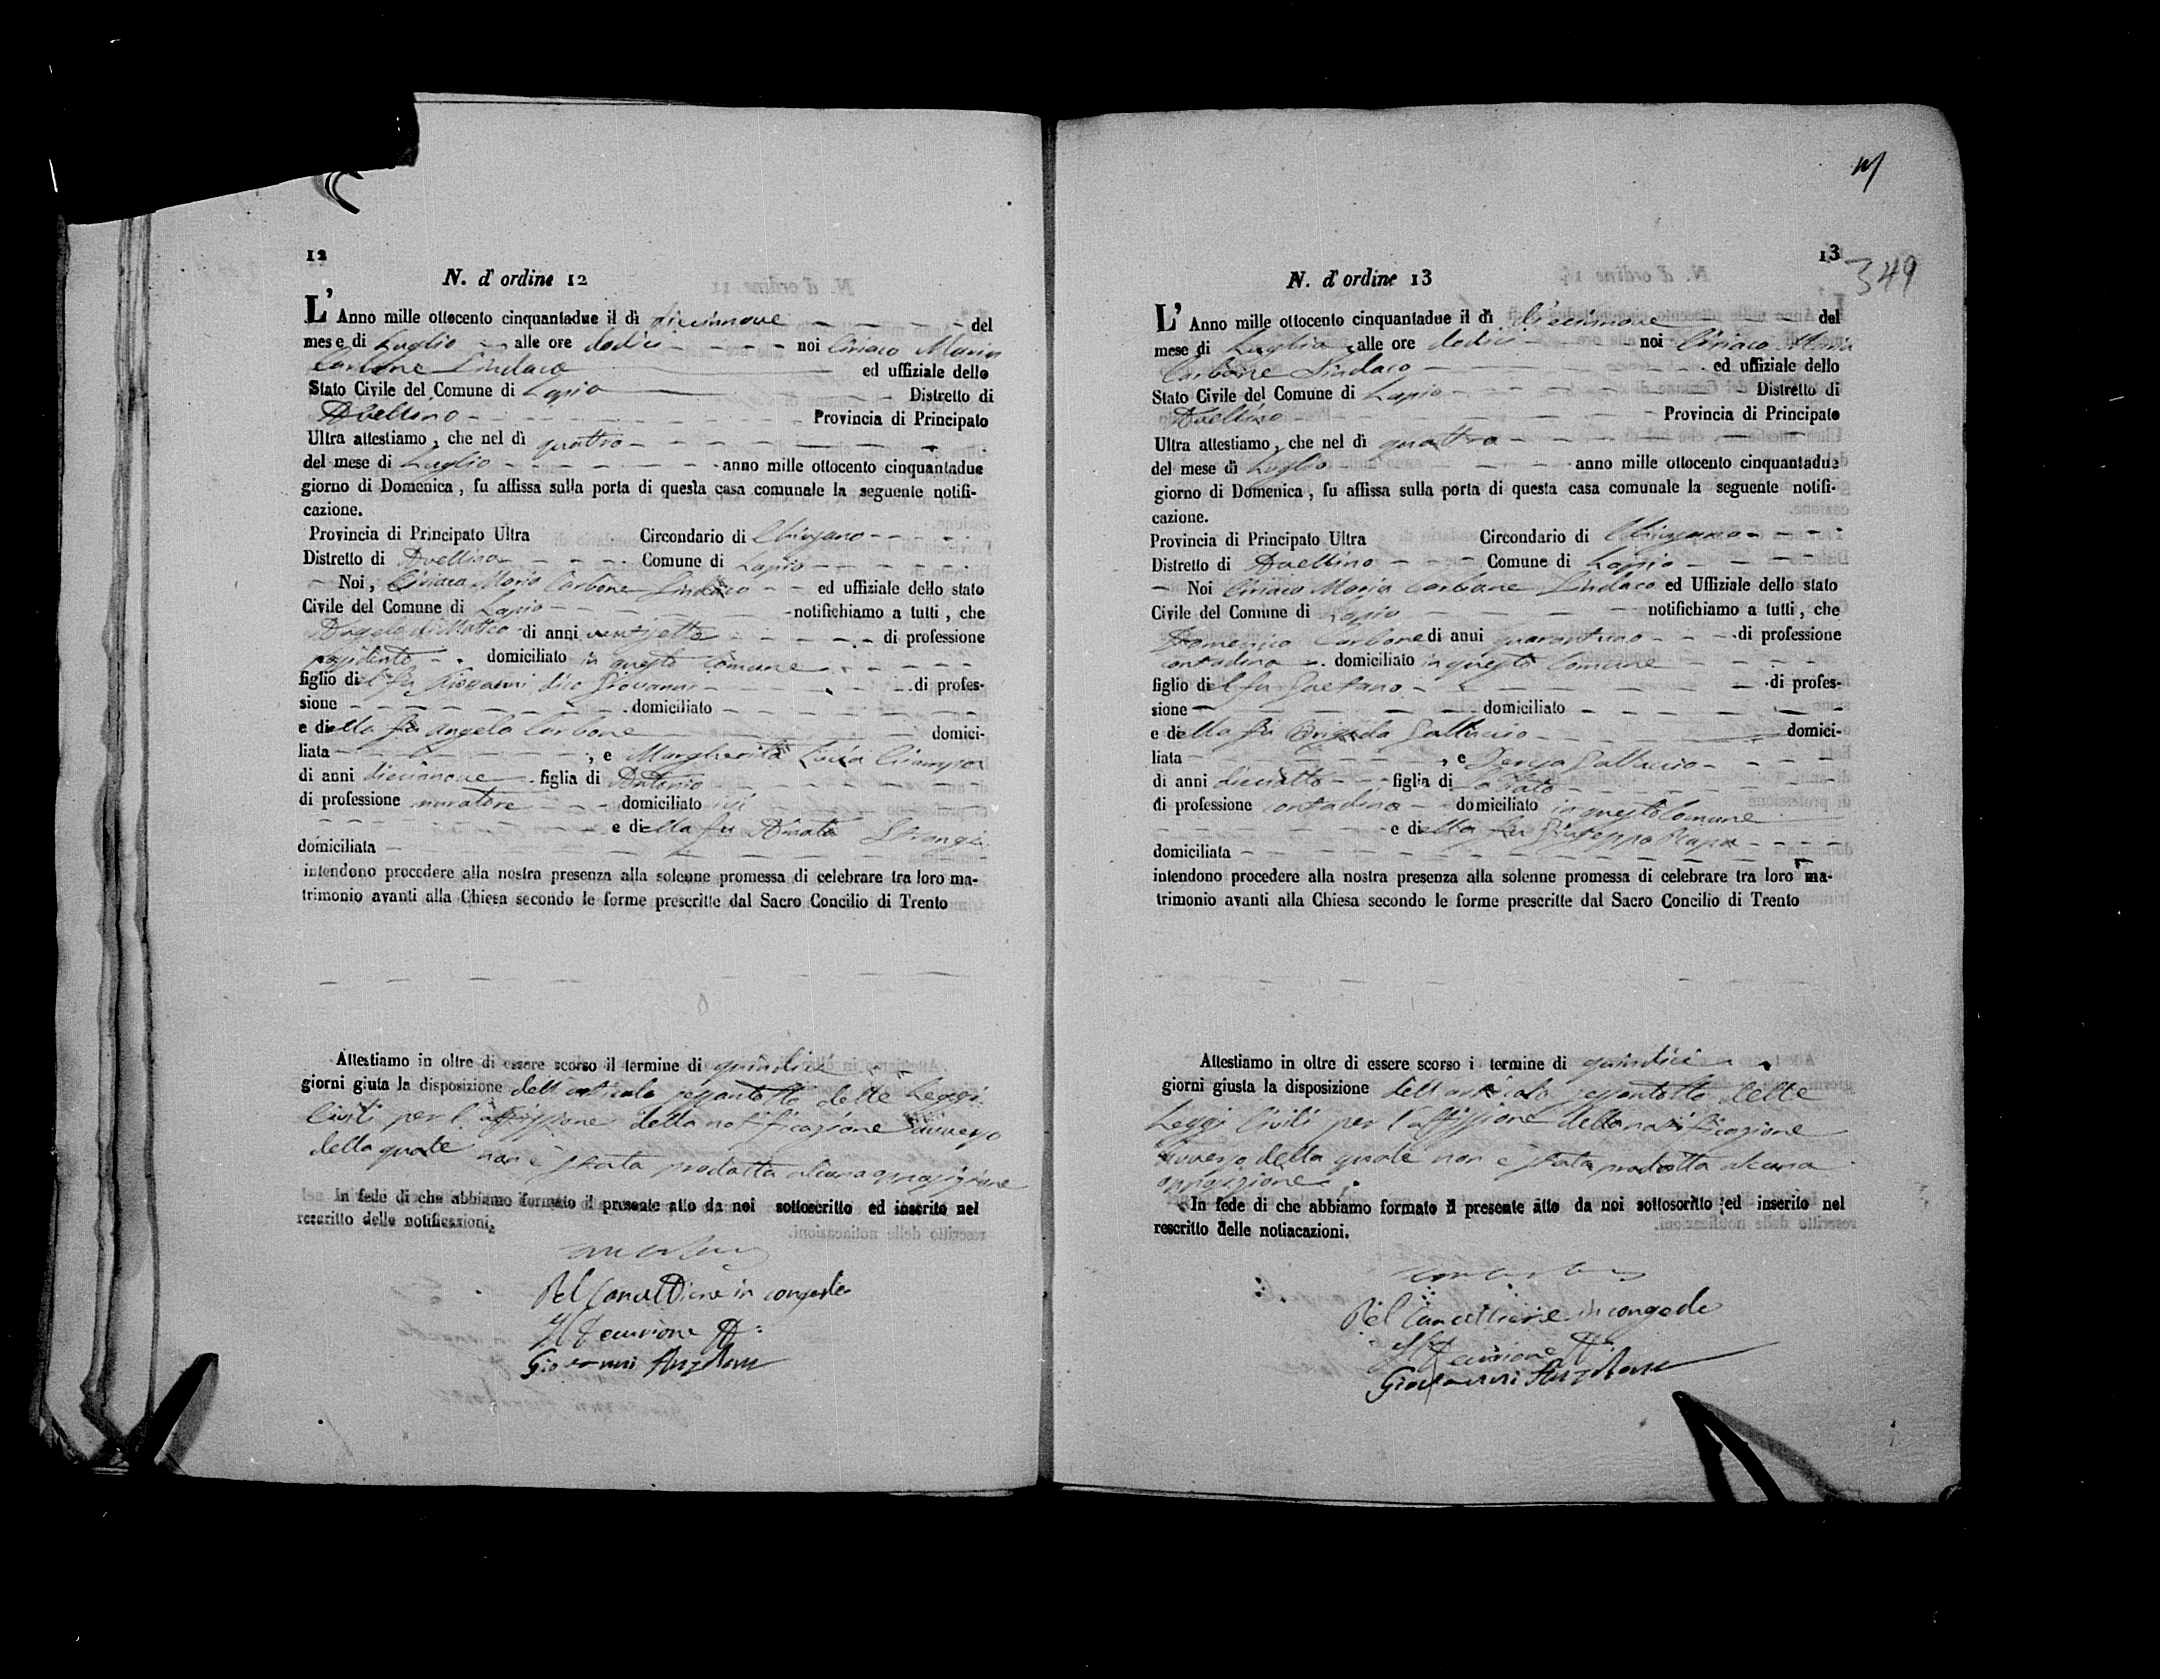 12
N. d'ordine 12
L' Anno mille ottocento cinquantadue il dì diecinnove del
mese di Luglio alle ore dodici noi Ciriaco Maria
Carbone Sindaco ed uffiziale dello
Stato Civile del Comune di Lapio Distretto di
Avellino Provincia di Principato
Ultra attestiamo, che nel dì quattro
del mese di Luglio anno mille ottocento cinquantadue
giorno di Domenica, fu affissa sulla porta di questa casa comunale la seguente notifi-
cazione.
Provincia di Principato Ultra Circondario di Chiusano
Distretto di Avellino Comune di Lapio
Noi, Ciriaco Maria Carbone Sindaco ed uffiziale dello stato
Civile del Comune di Lapio notifichiamo a tutti, che
Angelo di Matteo di anni ventisette di professione
possidente domiciliato in questo Comune
figlio del fu Giovanni Giovanni di profes-
sione domiciliato
e della fu Angela Carbone domici-
liata , e Margherita Lucia Ciampa
di anni diecinnove figlia di Antonio
di professione muratore domiciliato ivi
e della fu Amata
domiciliata
intendono procedere alla nostra presenza alla solenne promessa di celebrare tra loro ma-
trimonio avanti alla Chiesa secondo le forme prescritte dal Sacro Concilio di Trento
Attestiamo in oltre di essere scorso il termine di quindici
giorni giuta la disposizione dell'articolo sessantotto delle Leggi
Civili per l'affissione della notificazione avverso
della quale non è stata prodotta alcuna opposizione
In fede di che abbiamo formato il presente atto da noi sottoscritto ed inscrito nel
rescritto delle notificazioni.
Pel Cancelliere in congedo
Il Decurione
Giovanni Anzolone
13
349
N. d'ordine 13
L' Anno mille ottocento cinquantadue il dì diecinnove del
mese di Luglio alle ore dodici noi Ciriaco Maria
Carbone Sindaco ed uffiziale dello
Stato Civile del Comune di Lapio Distretto di
Avellino Provincia di Principato
Ultra attestiamo, che nel dì quattro
del mese di Luglio anno mille ottocento cinquantadue
giorno di Domenica, fu affissa sulla porta di questa casa comunale la seguente notifi-
cazione.
Provincia di Principato Ultra Circondario di Chiusano
Distretto di Avellino Comune di Lapio
Noi Ciriaco Maria Carbone Sindaco ed Uffiziale dello stato
Civile del Comune di Lapio notifichiamo a tutti, che
Domenico Carbone di anni quarantuno di professione
contadino domiciliato in questo Comune
figlio del fu Gaetano di profes-
sione domiciliato
e della fu Brigida Galluccio domici-
liata , e Teresa Galluccio
di anni dieciotto figlia di Donato
di professione contadino domiciliato in questo Comune
e della fu Giuseppa
domiciliata
intendono procedere alla nostra presenza alla solenne promessa di celebrare tra loro ma-
trimonio avanti alla Chiesa secondo le forme prescritte dal Sacro Concilio di Trento
Attestiamo in oltre di essere scorso i termine di quindici
giorni giusta la disposizione dell'articolo sessantotto delle
Leggi Civili per l'affissione della notificazione
avverso della quale non è stata prodotta alcuna
opposizione.
In fede di che abbiamo formato il presente atto da noi sottosoritto ed inserito nel
rescritto delle notiacazioni.
Pel Cancelliere in congedo
Il Decurione
Giovanni Anzolone